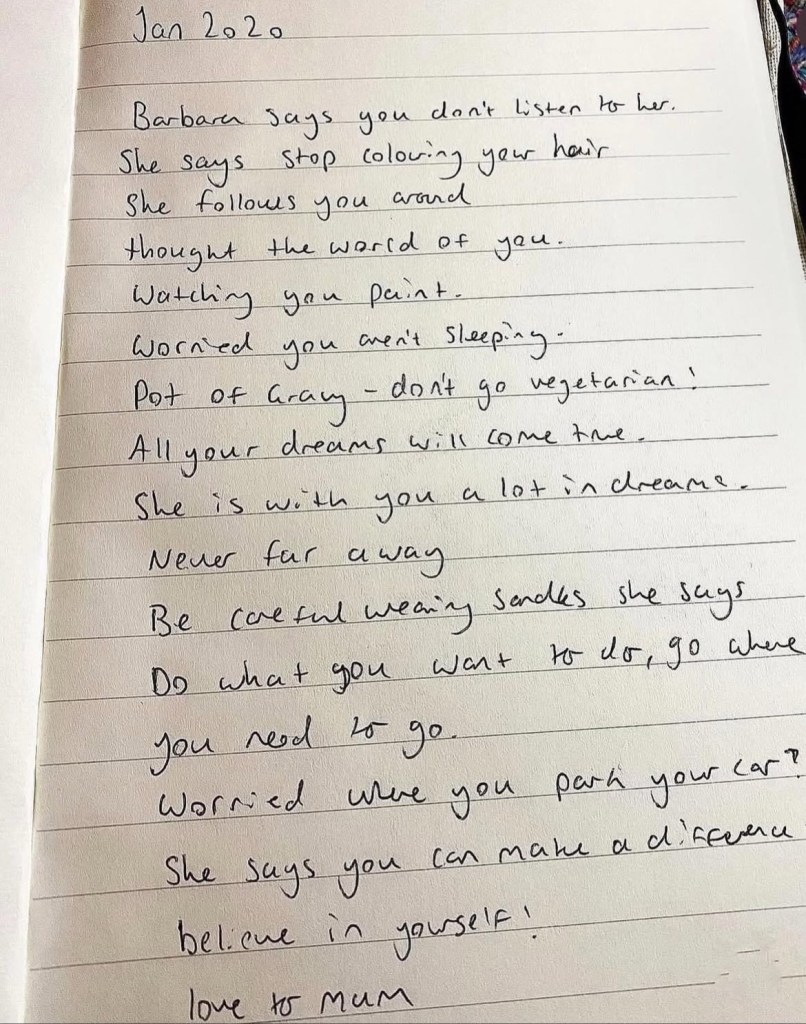 Jan 2020
Barbara says you don't listen to her.
She says stop colouring your hair
She follows you around
thought the world of you.
Watching you paint.
Worried you aren't sleeping.
Pot of Gravy - don't go vegetarian!
All your dreams will come true.
She is with you a lot in dreams.
Never far away
Be careful wearing sandles she says
Do what you want to do, go where
you need to go.
Worried where you park your car?
She says you can make a difference
believe in yourself!
love to mum